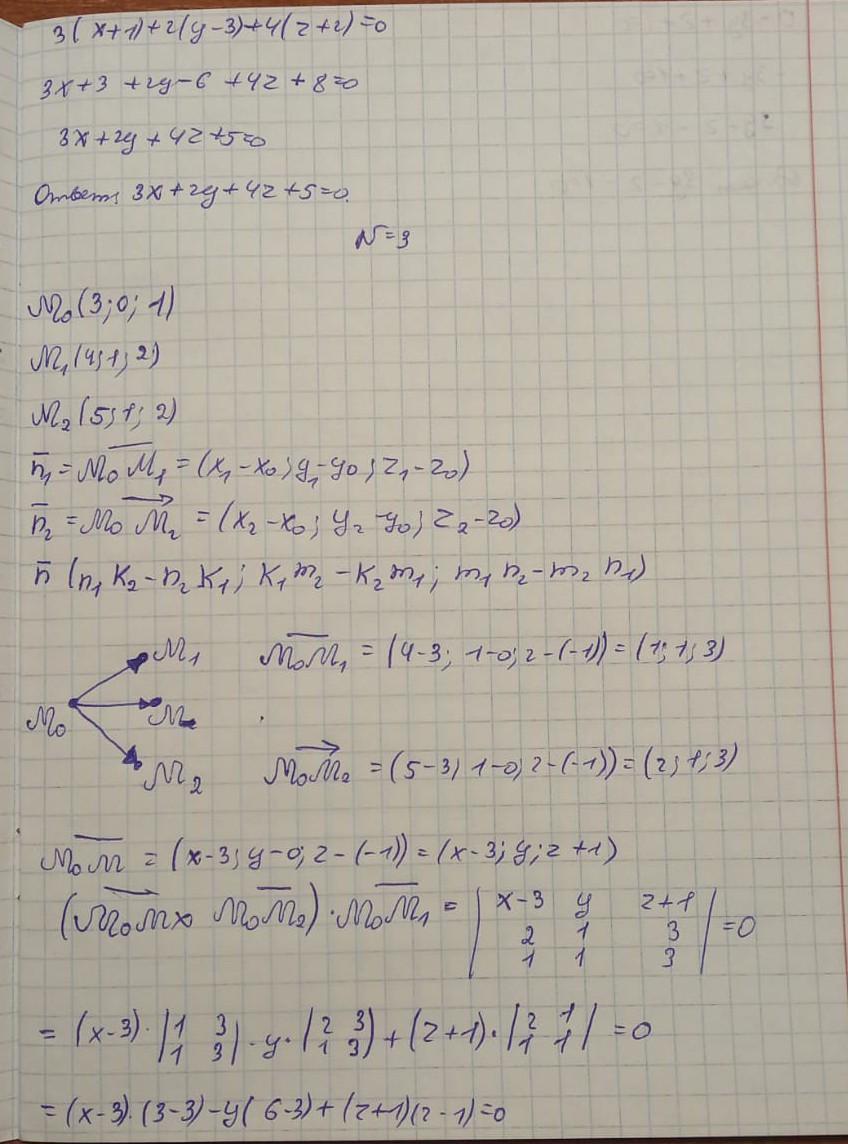 3(x+1)+2(y-3)+4(z+2)=0
3x+3+2y-6+4z+8=0
3x+2y+4z+5=0
Ответ: 3x+2y+4z+5=0.
N=3
M₀(3;0;-1)
M₁(4;1;2)
M₂(5;1;2)
n̅₁=M₀M₁=(x₁-x₀;y₁-y₀;z₁-z₀)
n̅₂=M₀M₂=(x₂-x₀;y₂-y₀;z₂-z₀)
n̅(n₁k₂-n₂k₁;k₁m₂-k₂m₁;m₁n₂-m₂n₁)
M₁ M₀M₁=(4-3;1-0;2-(-1))=(1;1;3)
M₀ M
M₂ M₀M₂=(5-3;1-0;2-(-1))=(2;1;3)
M₀M=(x-3;y-0;z-(-1))=(x-3;y;z+1)
(M₀M×M₀M₂)·M₀M₁=|x-3 y z+1|=0
2 1 3
1 1 3
=(x-3)·|1 3|-y·|2 3|+(z+1)·|2 1|=0
1 3 1 3 1 1
=(x-3)·(3-3)-y(6-3)+(z+1)(2-1)=0